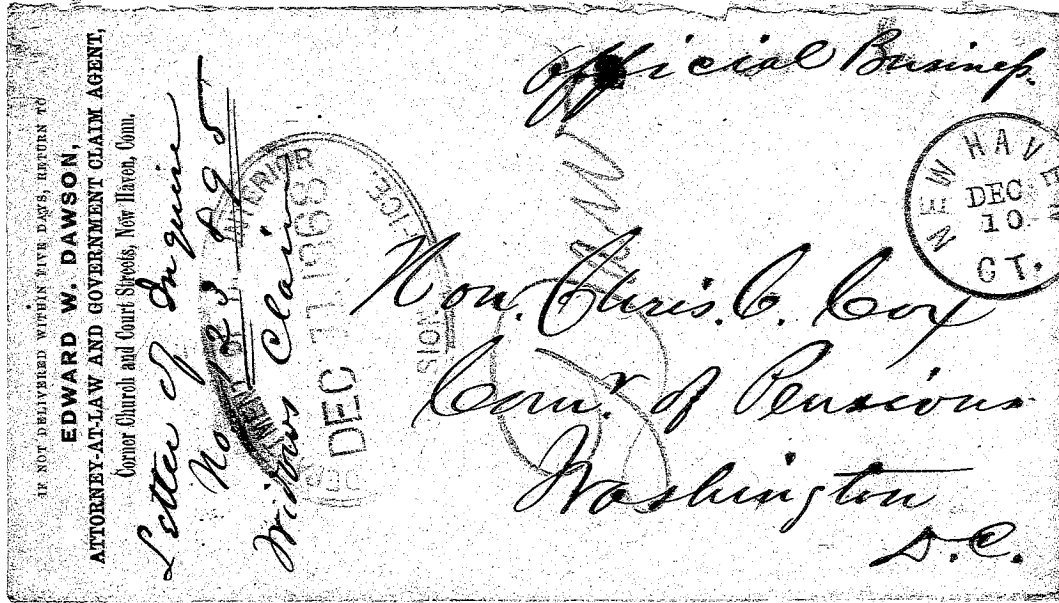 IF NOT DELIVERED WITHIN FIVE DAYS, RETURN TO
EDWARD W. DAWSON,
ATTORNEY-AT-LAW AND GOVERNMENT CLAIM AGENT,
Corner Church and Court Streets, New Haven, Conn.
Letter of Inquire
No 123 895
Widows Claim
INTERIOR
DEC 11 1868
SION OFFICE.
Official Business.
NEW HAVEN
DEC
10
CT.
Hon. Chris. C. Cox
Comr. of Pensions
Washington
D.C.